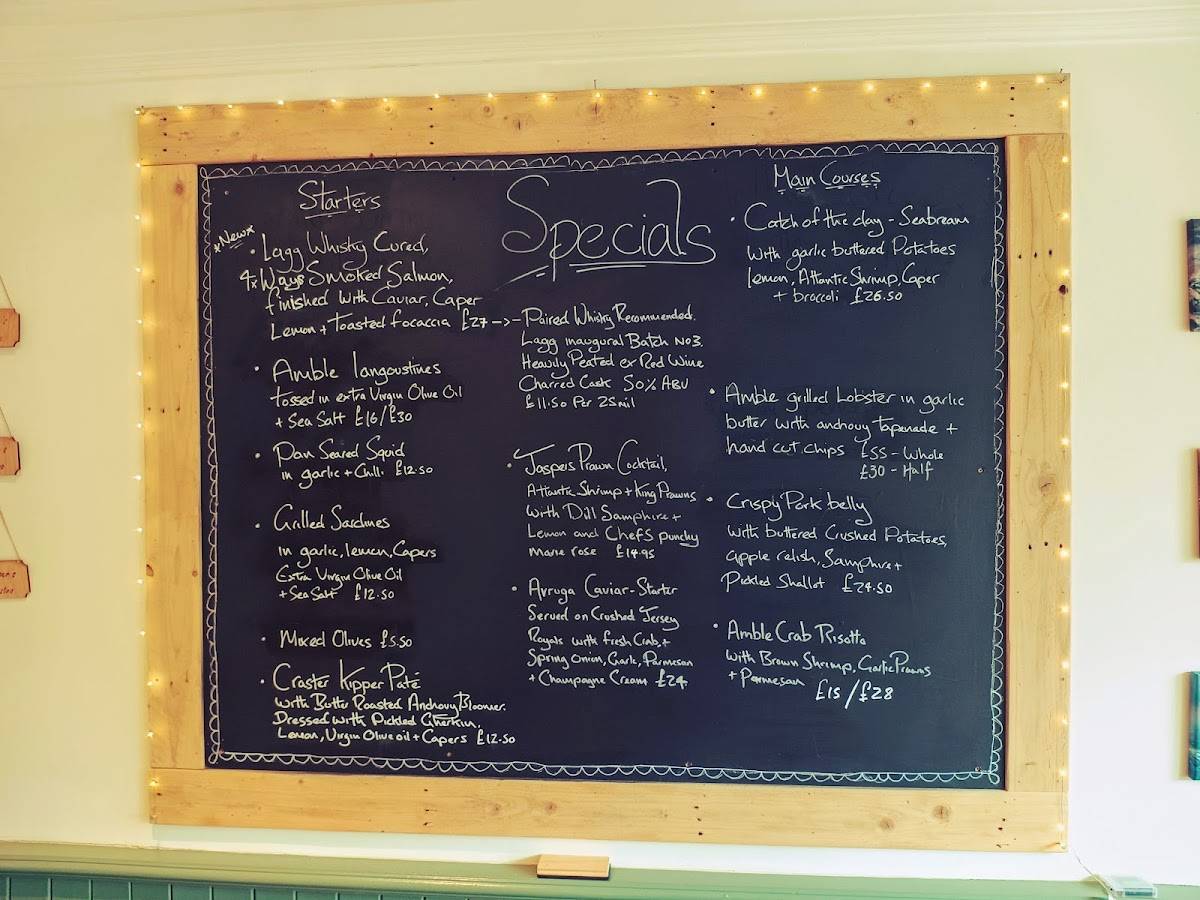 Specials
Starters
*New*
• Lagg Whisky Cured,
4x Ways Smoked Salmon,
finished with Caviar, Caper
Lemon + Toasted focaccia £27 ->-
Paired Whisky Recommended.
Lagg inaugural Batch No3.
Heavily Peated ex Red Wine
Charred Cask 50% ABV
£11.50 Per 25mil
• Amble langoustines
tossed in extra Virgin Olive Oil
+ Sea Salt £16/£30
• Pan Seared Squid
in garlic + Chilli £12.50
• Grilled Sardines
in garlic, lemon, Capers
Extra Virgin Olive Oil
+ Sea Salt £12.50
• Mixed Olives £5.50
• Craster Kipper Paté
With Butter Roasted Anchovy Bloomer.
Dressed with Pickled Gherkin,
Lemon, Virgin Olive oil + Capers £12.50
• Jaspers Prawn Cocktail,
Atlantic Shrimp + King Prawns
With Dill Samphire +
Lemon and Chefs punchy
marie rose £14.95
• Avruga Caviar - Starter
Served on Crushed Jersey
Royals with fresh Crab, +
Spring Onion, Garlic, Parmesan
+ Champagne Cream £24
Main Courses
• Catch of the day - Seabream
With garlic buttered Potatoes
lemon, Atlantic Shrimp, Caper
+ broccoli £26.50
• Amble grilled Lobster in garlic
butter with anchovy tapenade +
hand cut chips £55 - Whole
£30 - Half
• Crispy Pork belly
With buttered Crushed Potatoes,
apple relish, Samphire +
Pickled Shallot £24.50
• Amble Crab Risotto
With Brown Shrimp, Garlic Prawns
+ Parmesan £15/£28